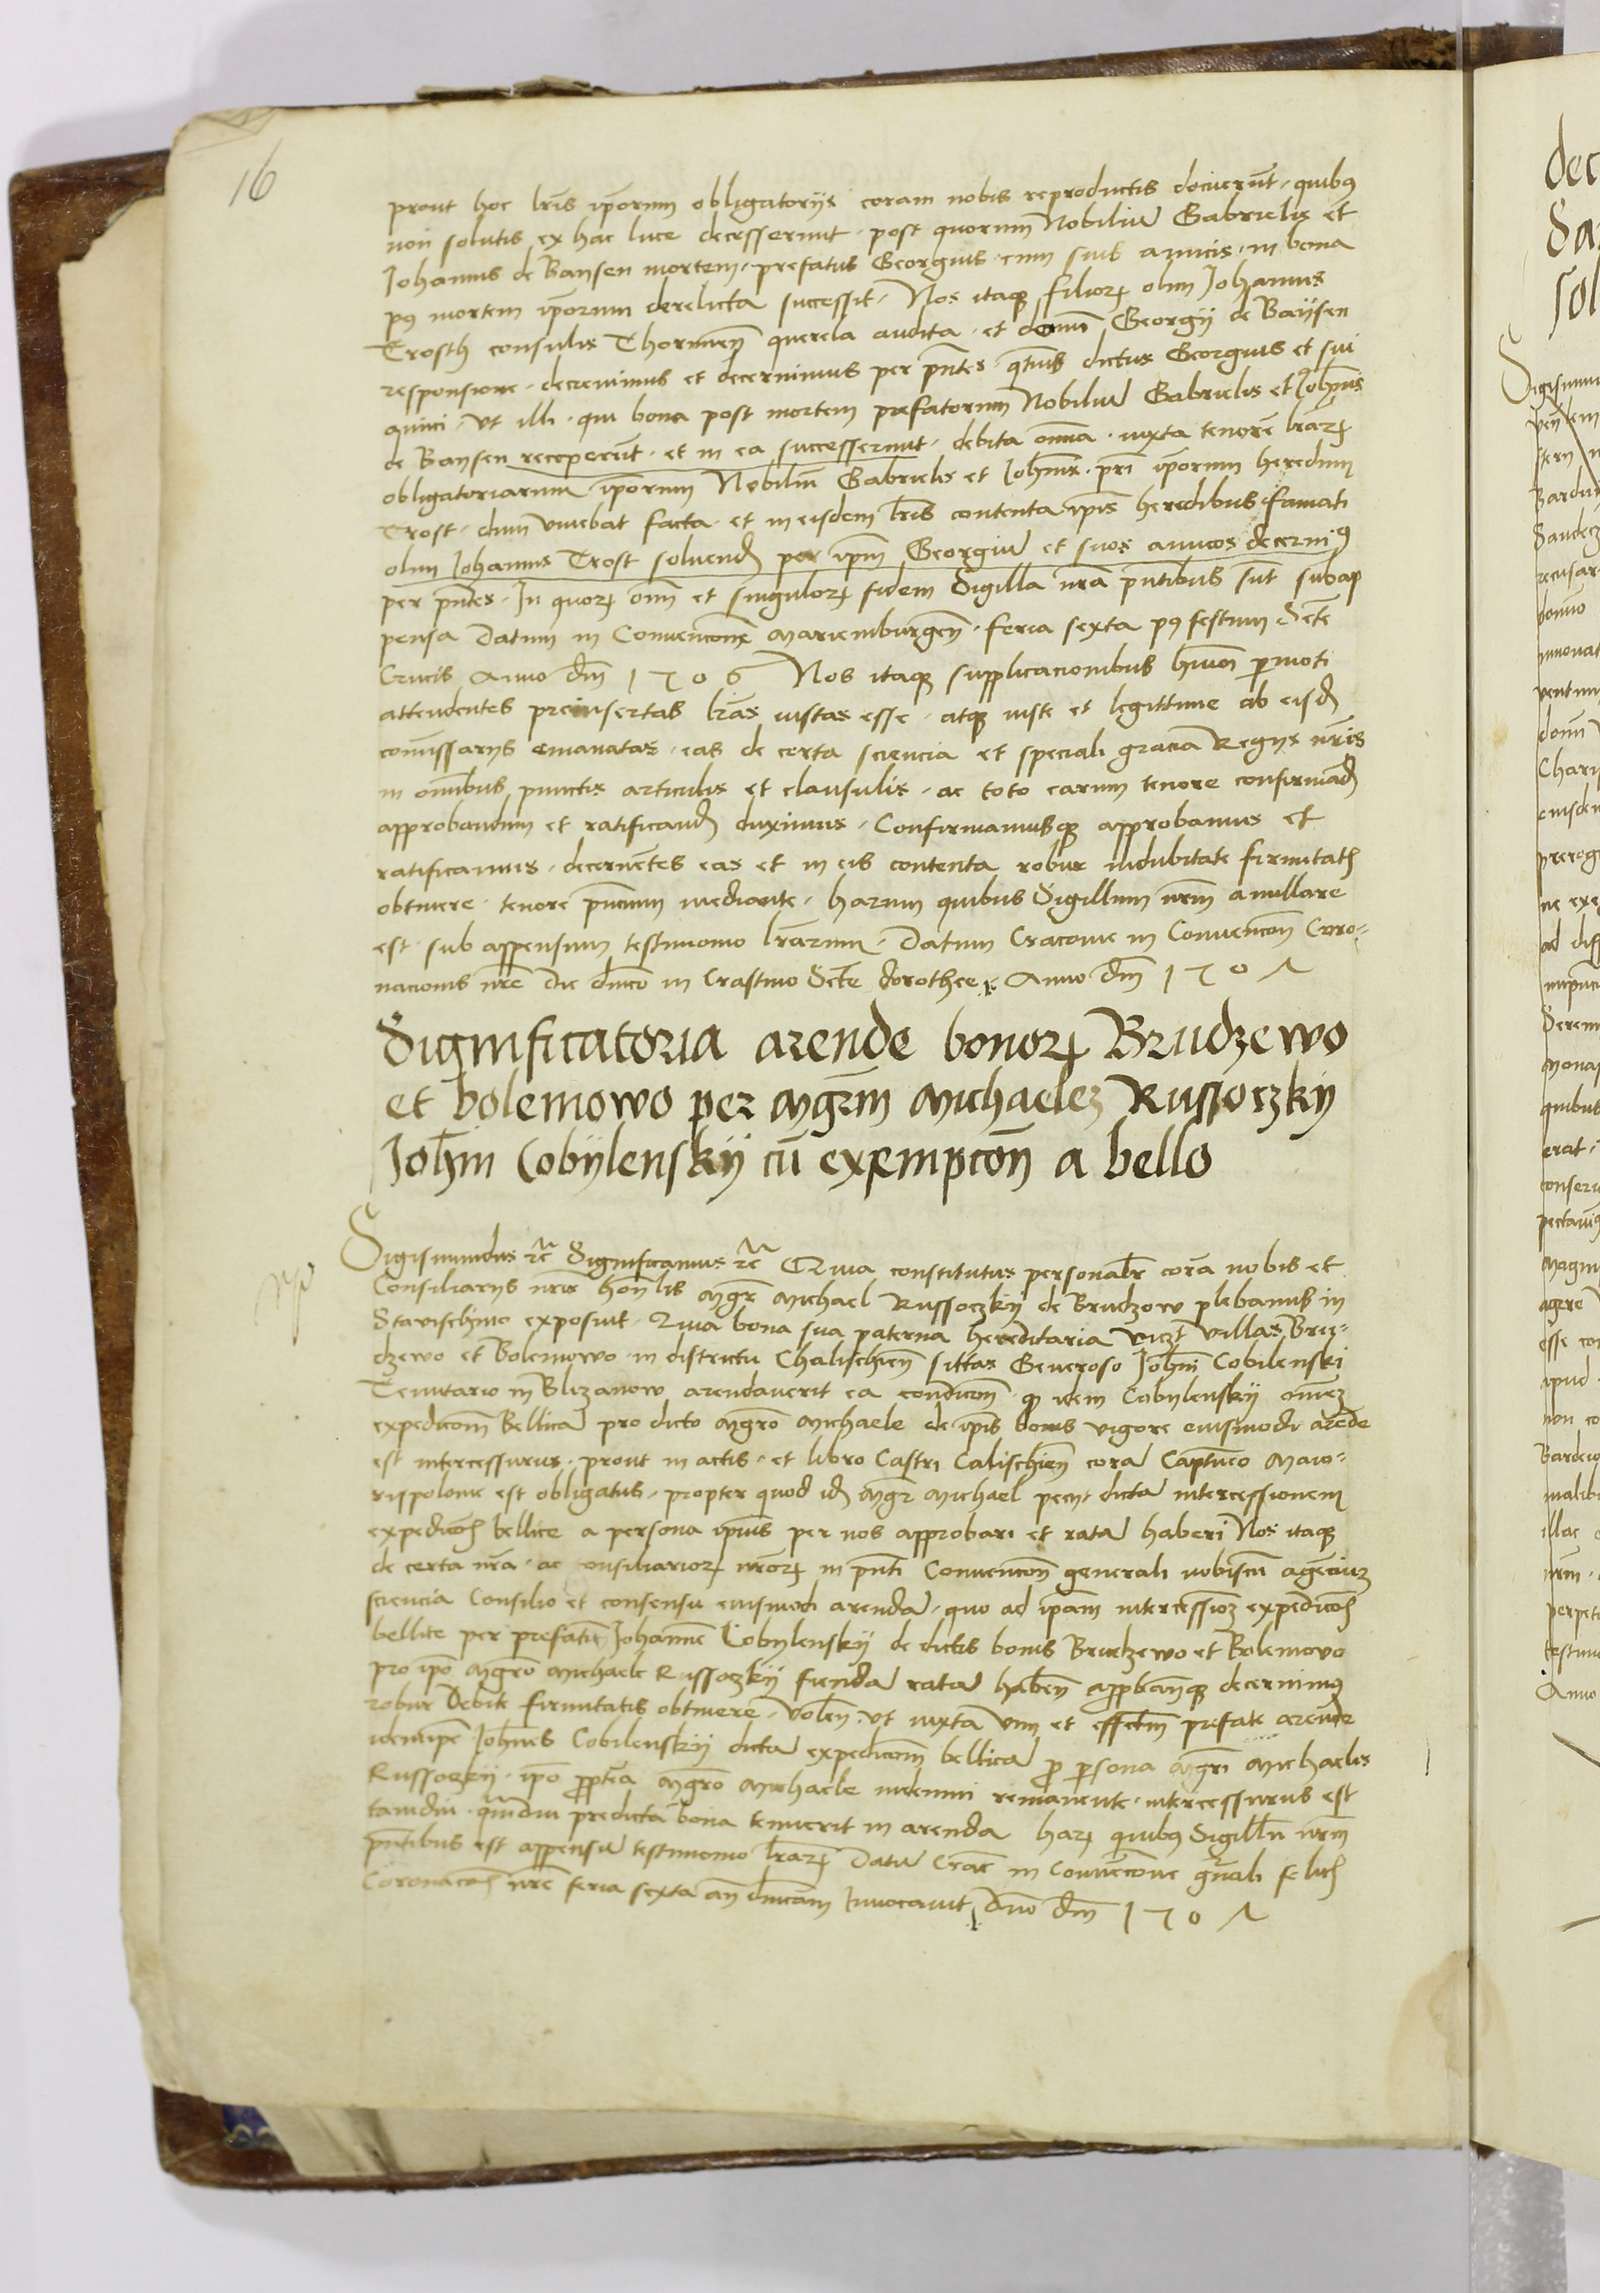 16
prout hoc lris iporum obligatorijs coram nobis reproductis docuerut quibus
non solutis ex hac luce decesserunt post quorum Nobiliu Gabrielis et
Johannis de Baysen mortem prefatus Georgius cum suis amicis in bona
post mortem iporum derelicta successit Nos itaque filiorum olim Johannis
Trosth consulis Thorunen querela audita et domini Georgij de Baijsen
responsione decrevimus et decernimus per pntes qtenus dictus Georgius et sui
amici ut illi qui bona post mortem prefatorum Nobiliu Gabrielis et Johannis
de Baysen receperut et in ea successerunt debita omnia iuxta tenore lrarum
obligatoriarum iporum Nobiliu Gabrielis et Johannis pri iporum heredum
Trost dum vivebat facta et in eisdem lris contenta ipis heredibus famati
olim Johannis Trost solvend per ipm Georgiu et suos amicos decernimus
per pntes In quorum omni et singulorum fidem Sigilla nra pntibus sunt subap
pensa Datum in Convencone Mariemburgen feria sexta post festum Scte
Crucis Anno dm 1506 Nos itaque supplicacionibus hmoi permoti
attendentes preinsertas lras iustas esse atque iuste et legittime ab eisd
comissarijs emanatas eas de certa sciencia et speciali gracia Regijs nris
in omnibus punctis articulis et clausulis ac toto earum tenore confirmand
approbandum et ratificand duximus Confirmamusque approbamus et
ratificamus decernetes eas et in eis contenta robur indubitate firmitatis
obtinere tenore pncium mediante harum quibus Sigillum nrm anullare
est sub appensum testimonio lrarum Datum Cracovie in Convencon Coro-
nacionis nre Die dnico in Crastino Scte dorothee Anno dm 1507
Significatoria arende bonorum Brudzewo
et bolemowo per Mgrm Michaelez Russoczkij
Johni Cobijlenskij cu exempcon a bello
Sigismundus etc Significamus etc Quia constitutus personalr cora nobis et
Consiliarijs nris honlis Mgr Michael Russoczkij de Brudzow plebanus in
Stavischino exposuit Quia bona sua paterna hereditaria viczt villas Bru-
dzewo et Bolemowo in districtu Chalischien sittas Generoso Johni Cobilenski
Tenutario in Blizanow arendaverit ea condicon quod idem Cobylenskij omnez
expedicom Bellica pro dicto Mgro Michaele de ipis bonis vigore eiusmodi arede
est intercessurus prout in actis et libro Castri Calischien cora Captneo Maio-
rispolonie est obligatus propter quod id Mgr Michael peciit dicta intercessionem
expedicois bellice a persona ipius per nos approbari et rata haberi Nos itaque
de certa nra ac consiliariorum nrorum in pnti Convencon generali nobiscu agenciuz
sciencia Consilio et consensu eiusmodi arenda quo ad ipam intercessioz expedicois
bellice per prefatu Johanne Cobylenskij de dictis bonis Brudzewo et Bolemovo
pro ipo Mgro Michaele Russoczkij fienda rata haben approbanque decernimus
robur Debite firmitatis obtinere volen ut iuxta vim et effectm prefate arende
idemipe Johnes Cobilenskij dicta expedicom bellica pro persona Mgri Michaelis
Russoczkij ipo proptea Mgro Michaele indemni remanente intercessurus est
tamdiu qmdiu predicta bona tenuerit in arenda harum quibus Sigillu nrm
pntibus est appensu testimonio lrarum Datu Crac in Convencone gnali felicis
Coronacois nre feria sexta an dnicam Invocavit Ano dm 1507